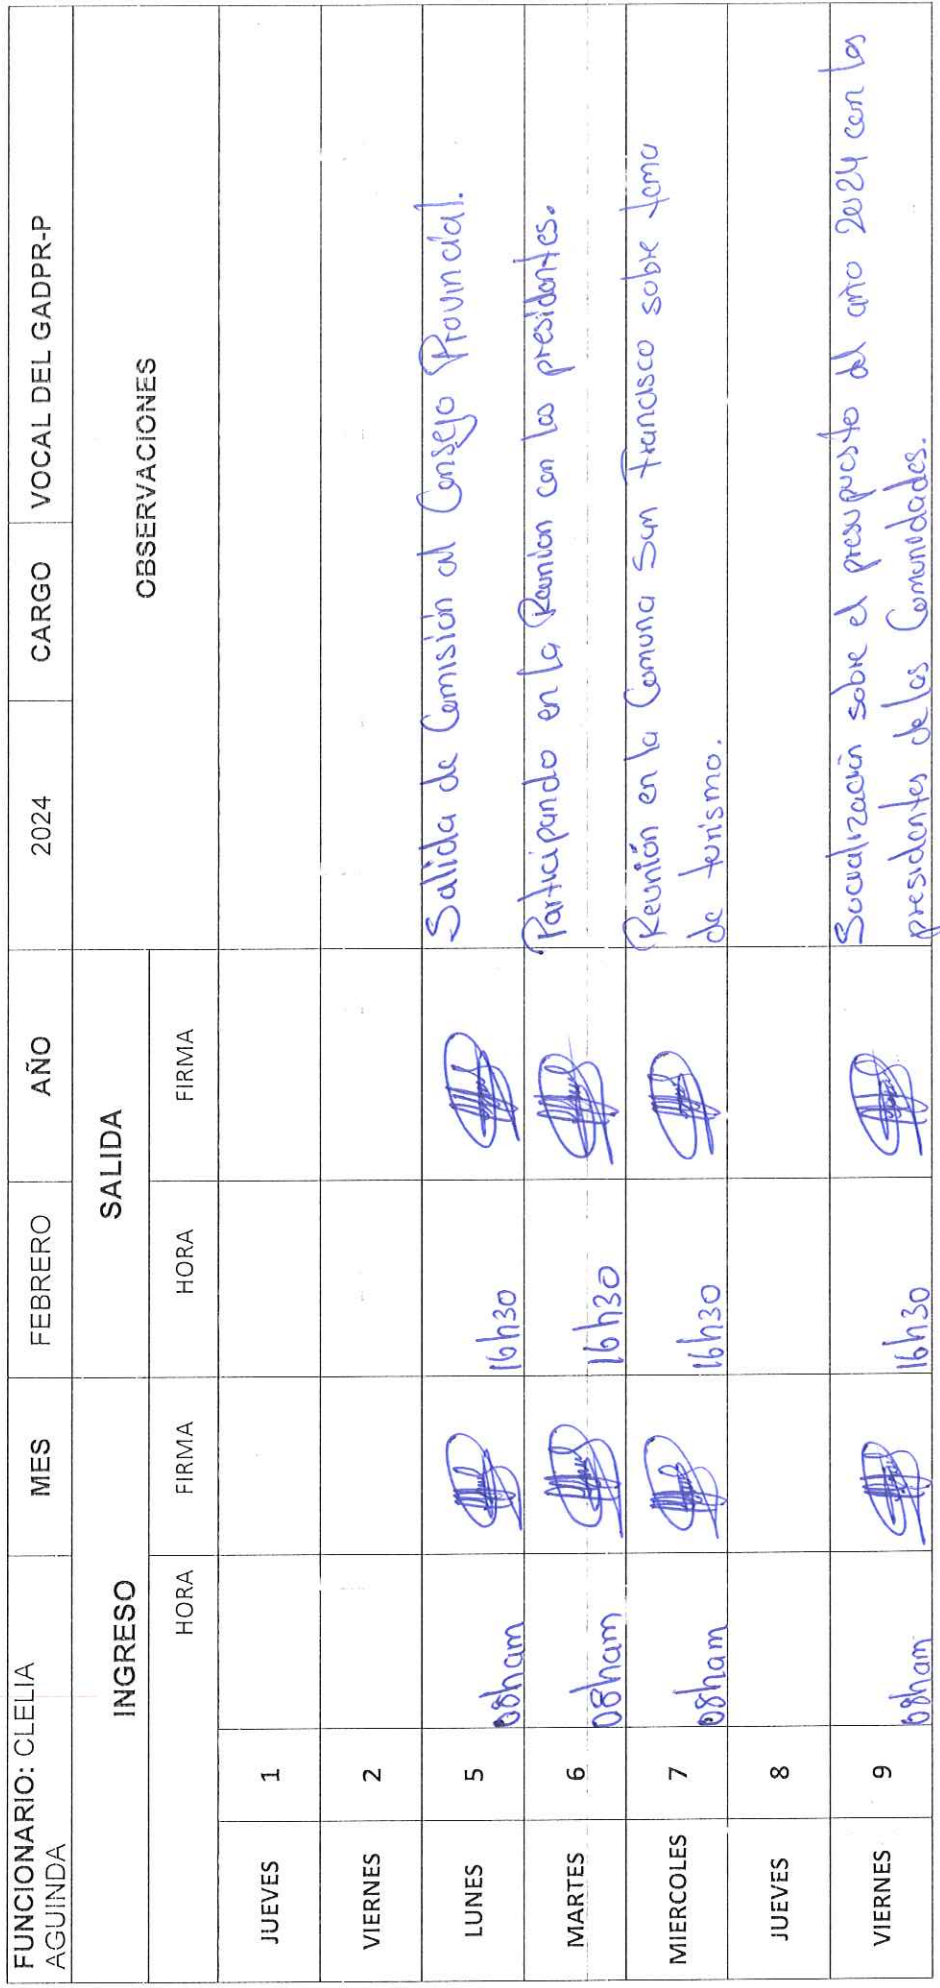 FUNCIONARIO: CLELIA AGUINDA MES FEBRERO AÑO 2024 CARGO VOCAL DEL GADPR-P
INGRESO SALIDA OBSERVACIONES
HORA FIRMA HORA FIRMA
JUEVES 1
VIERNES 2
LUNES 5 08ham 16h30 Salida de Comisión al Consejo Provincial.
MARTES 6 08ham 16h30 Participando en la Reunion con los presidentes.
MIERCOLES 7 08ham 16h30 Reunión en la Comuna San Francisco sobre tema
de turismo.
JUEVES 8
VIERNES 9 08ham 16h30 Socialización sobre el presupuesto del año 2024 con los
presidentes de las Comunidades.